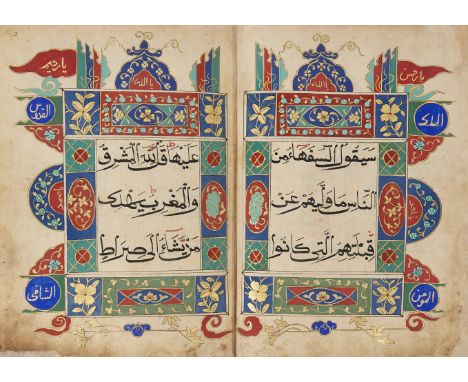 يا رحمن
يا الله
الملك
سيقول السفهاء من
الناس ما وليهم عن
قبلتهم التي كانوا
المؤمن
يا الله
يا رحيم
القدوس
عليها قل لله المشرق
والمغرب يهدي
من يشاء الى صراط
الشافي